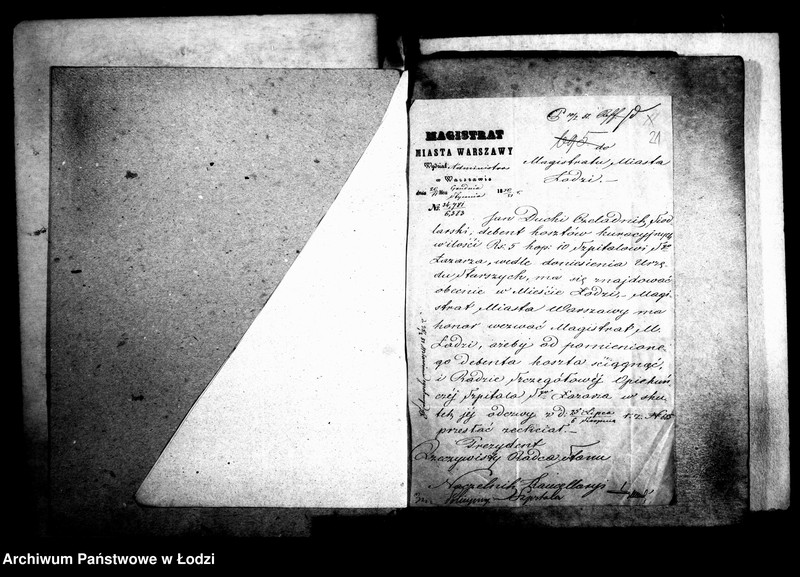 21
695 do
MAGISTRAT
MIASTA WARSZAWY
Wydział Administra
w Warszawie
dnia Grudnia
Stycznia 18
№ 34,781
6,383
Magistratu Miasta
Łodzi.—
Jan Duchi Czeladnik Siod
larski, debent kosztów kuracyjnych
w ilości Rs. 5 kop: 10 Szpitalowi Sgo
Łazarza, wedle doniesienia Urzę
du Starszych, ma się znajdować
obecnie w Mieście Łodzi,— Magi
strat Miasta Warszawy ma
honor wezwać Magistrat M.
Łodzi, ażeby od pomienione
go debenta koszta ściągnąć,
i Radzie Szczegółowéj Opiekuń
czéj Szpitala Sgo Łazarza w sku
tek jéj odezwy z d: Lipca
Sierpnia r. z. №
przesłać zechciał.—
Prezydent
Rzeczywisty Radca Stanu
Naczelnik Kancellaryi
Szpitala
Archiwum Państwowe w Łodzi